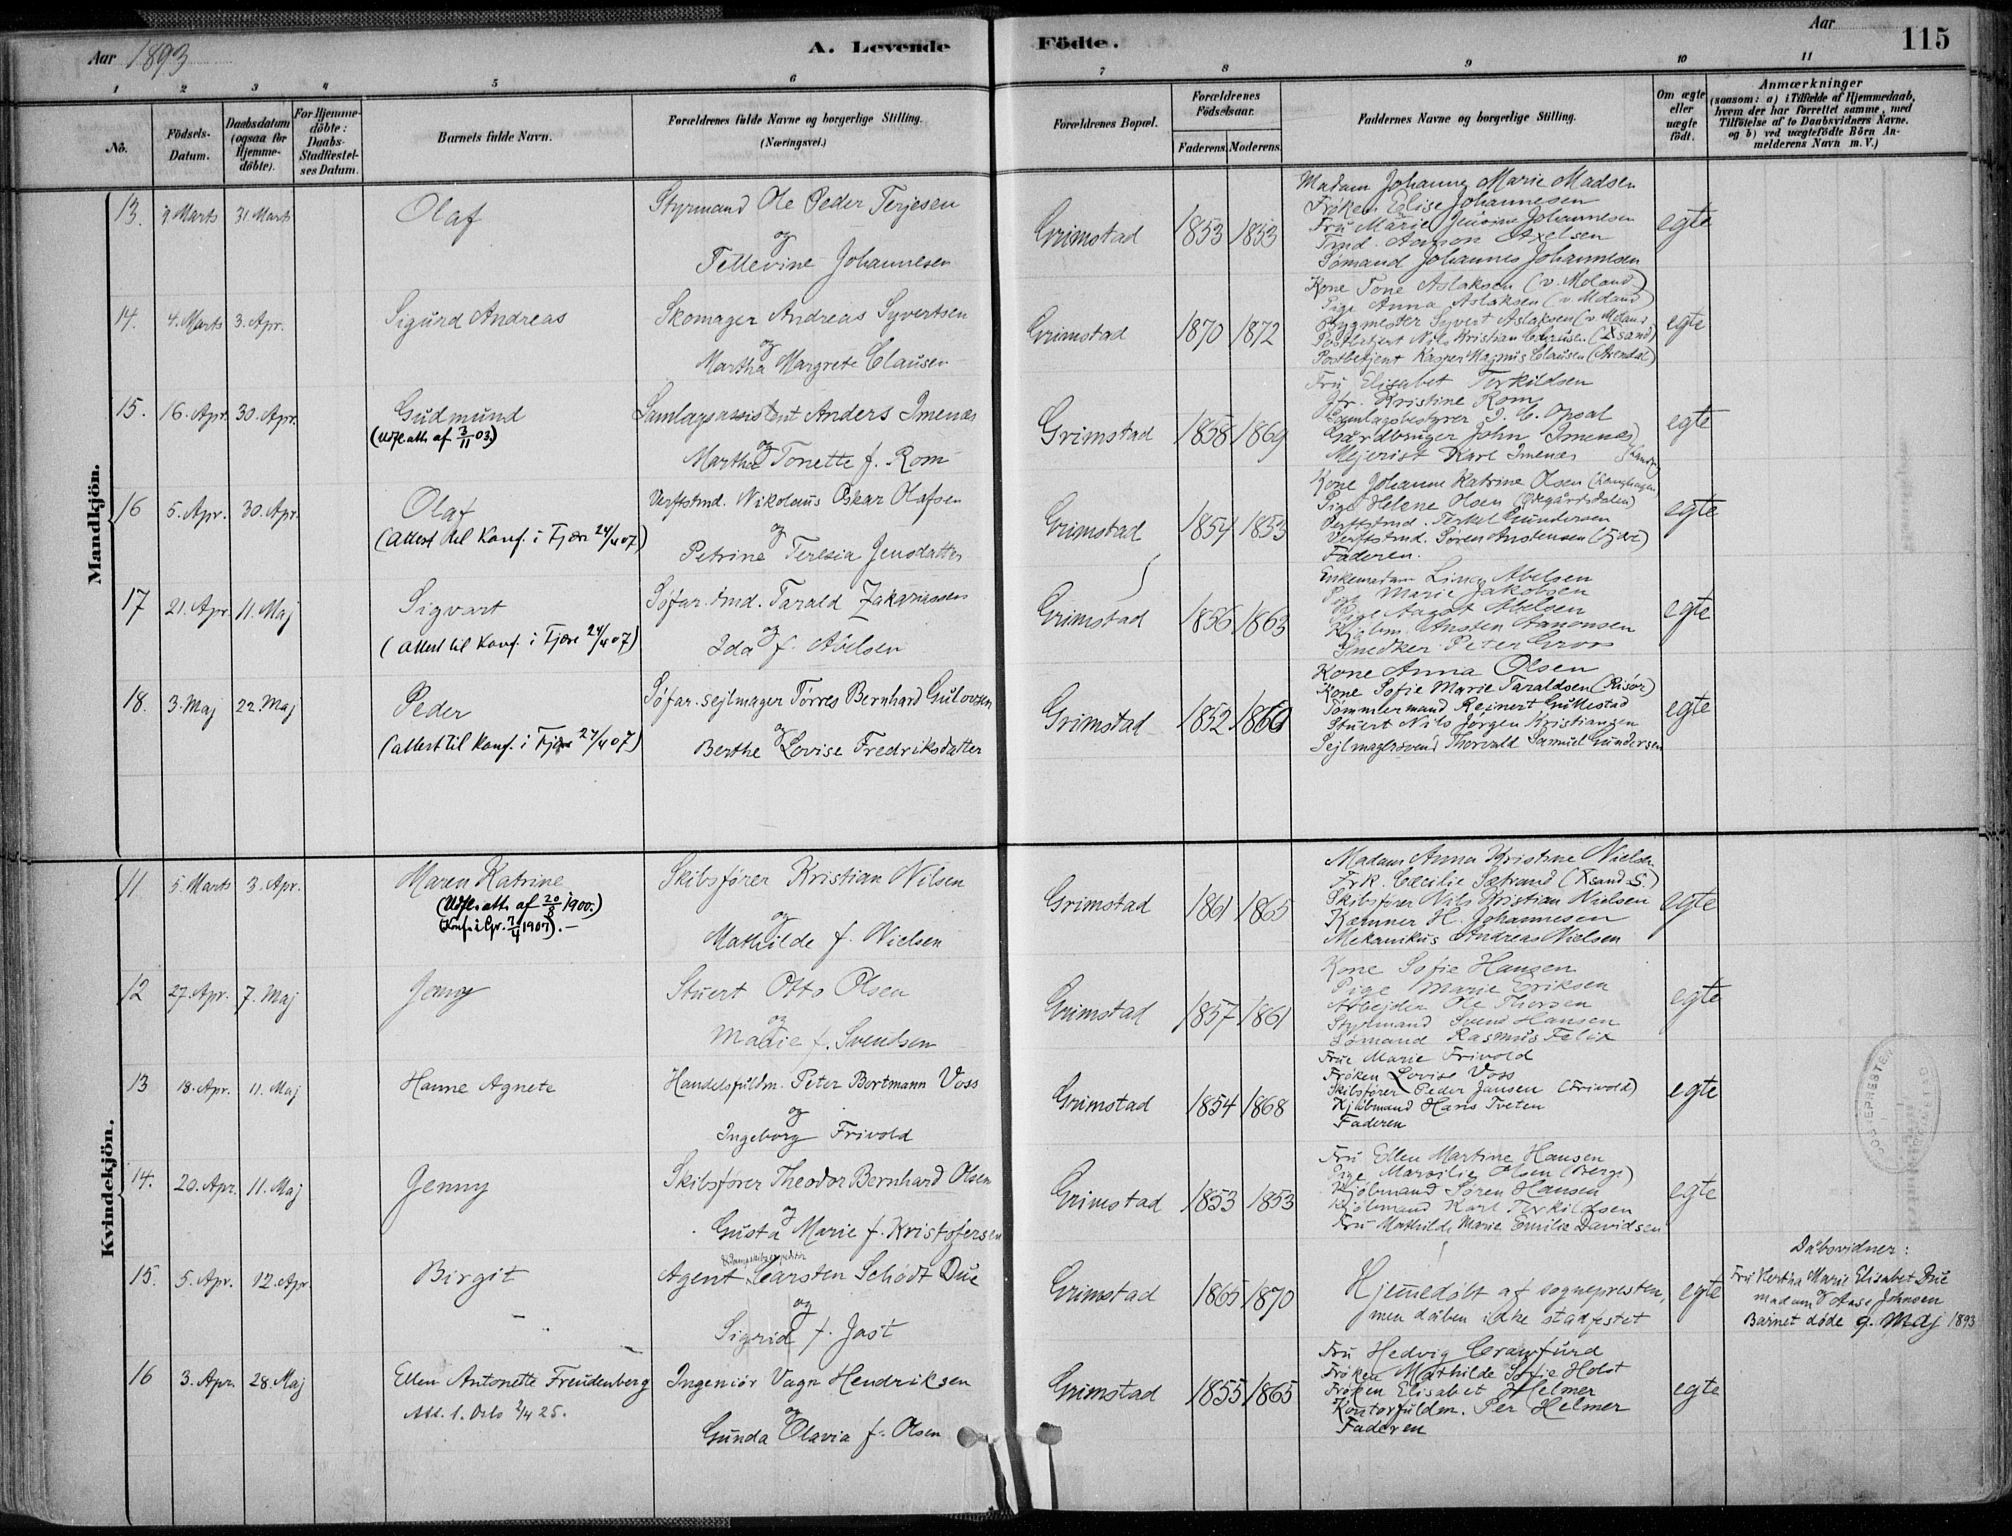 Aar 1893
A. Levende Födte.
Aar
115
1 2 3 4 5 6 7 8 9 10 11
No.
Födsels-Datum.
Daabsdatum (ogsaa for Hjemme-döbte).
For Hjemme-döbte: Daabs-Stadfæstel-ses Datum.
Barnets fulde Navn.
Forældrenes fulde Navne og borgerlige Stilling. (Næringsvei.)
Forældrenes Bopæl.
Forældrenes Födselsaar.
Faderens. Moderens.
Faddernes Navne og borgerlige Stilling.
Om ægte eller uægte födt.
Anmærkninger
(saasom: a) i Tilfælde af Hjemmedaab, hvem der har forrettet samme, med Tilföielse af to Daabsvidners Navne. og b) ved uægtefödte Börn An-melderens Navn m.V.)
Mandkjön.
13. 9 Marts 31 Marts
Olaf
Styrmand Ole Peder Terjesen
og
Tellevine Johannesen
Grimstad 1853 1853
Madam Johanne Marie Madsen
Frøken Elise Johannesen
Fru Marie Jensine Johannesen
Tmd. Aanon Axelsen
Sømand Johannes Johannesen
egte
14. 4. Marts 3. Apr.
Sigurd Andreas
Skomager Andreas Syvertsen
og
Martha Margrete Clausen
Grimstad 1870 1872
Kone Tone Aslaksen (v. Moland)
Pige Anna Aslaksen (v. Moland)
Bygmester Syvert Aslaksen (v. Moland
Postbetjent Nils Kristian Clausen (Xsand)
Postbetjent Kasper Magnus Clausen (Arendal)
egte
15. 16. Apr. 30. Apr.
Gudmund
(Udfl. att. af 3/11 03.)
Samlagsassistent Anders Imenæs
og
Martha Tonette f. Rom
Grimstad 1858 1869
Fru Elisabet Terkildsen
Jfr. Kristine Rom
Samlagsbestyrer J. C. Opsal
Gårdbruger John Imenes
Mejerist Karl Imenæs
egte
16 5. Apr. 30. Apr.
Olaf
(Attest til Konf. i Fjære 24/4 07)
Verftstmd. Nikolaus Oskar Olafsen
og
Petrine Teresia Jensdatter
Grimstad 1854 1853
Kone Johanne Katrine Olsen
Pige Helene Olsen (Ødegårdsdalen)
Verftstmd. Terkel Gundersen
Verftstmd. Søren Anstensen (Fjære)
Faderen.
egte
17 21. Apr 11. Maj
Sigvart
(Attest til Konf. i Fjære 24/4 07)
Søfar. tmd. Tarald Zakariassen
og
Ida f. Abelsen
Grimstad 1856 1863
Enkemadam Lina Abelsen
Pige Marie Jakobsen
Pige Aagot Abelsen
Kjøbm. Ansten Aanonsen
Snedker Peter Groos
egte
18. 3. Maj 22. Maj
Peder
(attest til konf. i Fjære 24/4 07)
Søfar. sejlmager Tørres Bernhard Gulovsen
og
Berthe Lovise Fredriksdatter
Grimstad 1852 1860
Kone Anna Olsen
Kone Sofie Marie Taraldsen (Risør)
Tømmermand Reinert Gullestad
Stuert Nils Jørgen Kristiansen
Sejlmagersvend Thorvald Samuel Gundersen
egte
Kvindekjön.
11. 5. Marts 3. Apr.
Maren Katrine
(Udfl. att. af 20/8 1900.)
(Konf. i Gr. 7/4 1907). -
Skibsfører Kristian Nilsen
og
Mathilde f. Nielsen
Grimstad 1861 1865
Madam Anna Kristine Nielsen
Frk. Cæcilie Sætrand (Xsand S.)
Skibsfører Nils Kristian Nielsen
Kæmner H. Johannesen
Mekanikus Andreas Nielsen
egte
12 27. Apr. 7. Maj
Jenny
Stuert Otto Olsen
og
Marie f. Svendsen
Grimstad 1857 1861
Kone Sofie Hansen
Pige Marie Eriksen
Arbejder Ole Thorsen
Styrmand Svend Hansen
Sømand Rasmus Felix
egte
13 18. Apr. 11. Maj
Hanne Agnete
Handelsfuldm. Peter Bortmann Voss
og
Ingeborg Frivold
Grimstad 1854 1868
Frue Marie Frivold
Frøken Lovise Voss
Skibsfører Peder Jansen (Frivold)
Kjøbmand Hans Tveten
Faderen
egte
14. 20. Apr. 11. Maj
Jenny
Skibsfører Theodor Bernhard Olsen
og
Gusta Marie f. Kristofersen
Grimstad 1853 1853
Fru Ellen Martine Hansen
Pige Marsilie Olsen (Berge)
Kjøbmand Søren Hansen
Kjøbmand Karl Terkildsen
Fru Mathilde Marie Emilie Davidsen
egte
15. 5. Apr. 12. Apr
Birgit
Agent Carsten Schødt Due
og
Sigrid f. Jast
Grimstad 1865 1870
Hjemedøbt af sognepresten,
men dåben ikke stadfestet
egte
Dåbsvidner:
Fru Hertha Marie Elisabet Due
madam Aase Johnsen
Barnet døde 9. Maj 1893
16 3. Apr. 28. Maj
Ellen Antonette Freudenberg
Att. t. Oslo 2/4 25.
Ingeniør Vagn Hendriksen
og
Gunda Olavia f. Olsen
Grimstad 1855 1865
Fru Hedvig Crawfurd
Frøken Mathilde Sofie Holst
Frøken Elisabet Helmer
Kontorfuldm. Per Helmer
Faderen
egte